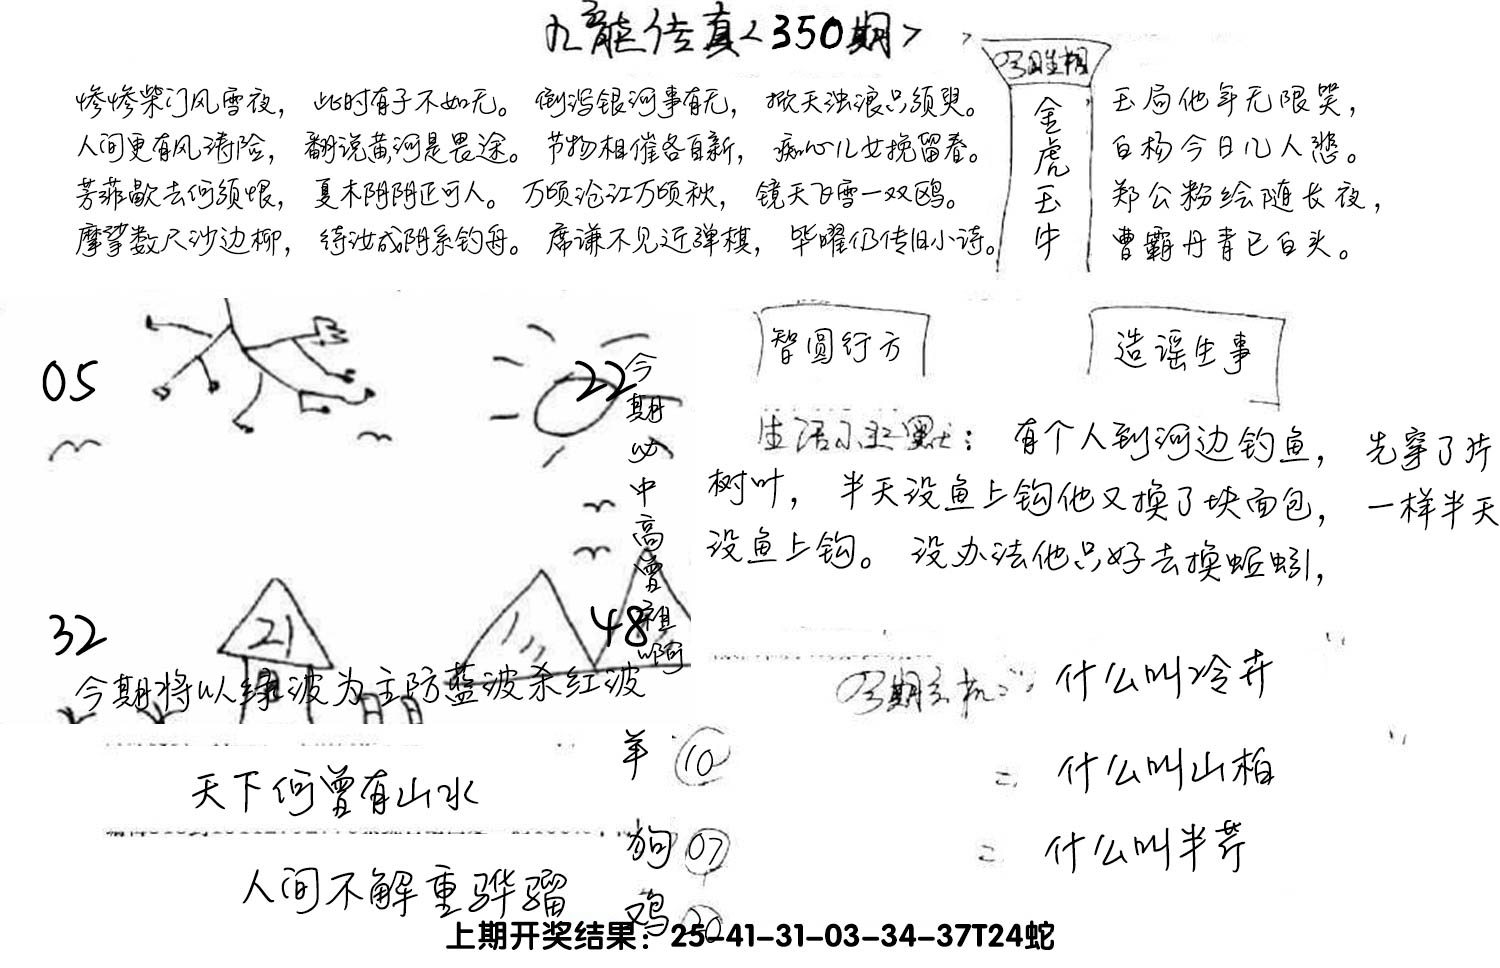 九龙传真<350期>
惨惨柴门风雪夜，此时有子不如无。倒泻银河事有无，掀天浊浪只须臾。
人间更有风涛险，翻说黄河是畏途。节物相催各自新，痴心儿女挽留春。
芳菲歇去何须恨，夏木阴阴正可人。万顷沧江万顷秋，镜天飞雪一双鸥。
摩挲数尺沙边柳，待汝成阴系钓舟。席谦不见近弹棋，毕曜仍传旧小诗。
金虎玉牛
玉局他年无限笑，
白杨今日几人悲。
郑公粉绘随长夜，
曹霸丹青已白头。
05
22
32
48
21
今期必中高曾祖啊
今期将以绿波为主防蓝波杀红波
智圆行方
造谣生事
生活小幽默：有个人到河边钓鱼，先穿了片
树叶，半天没鱼上钩他又换了块面包，一样半天
没鱼上钩。没办法他只好去换蚯蚓，
今期玄机：什么叫冷卉
= 什么叫山柏
= 什么叫半芹
天下何曾有山水
人间不解重骅骝
羊 10
狗 07
鸡 20
上期开奖结果：25-41-31-03-34-37T24蛇